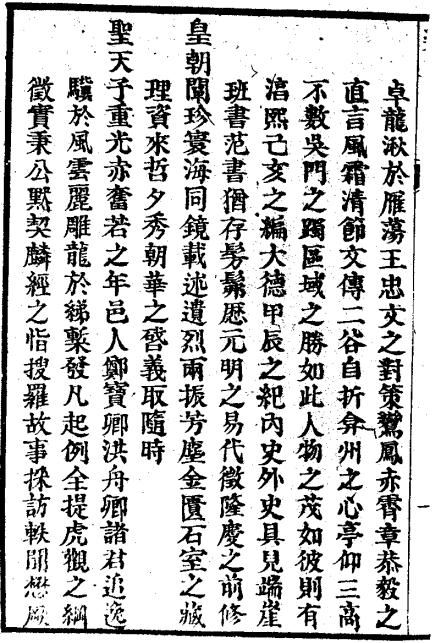 卓龍湫於雁蕩王忠文之對策鸞鳳赤霄章恭毅之
直言風霜清節文傳二谷自折弇州之心亭仰三高
不數吳門之躅區域之勝如此人物之茂如彼則有
淳熙己亥之編大德甲辰之紀內史外史具見端崖
班書范書猶存髣髴歷元明之易代徵隆慶之前修
皇朝闡珍寰海同鏡載述遺烈兩振芳塵金匱石室之藏
理資來哲夕秀朝華之啓義取隨時
聖天子重光赤奮若之年邑人鄭寶卿洪舟卿諸君追逸
驥於風雲麗雕龍於綈槧發凡起例全提虎觀之綱
徵實秉公默契麟經之恉搜羅故事採訪軼聞懋